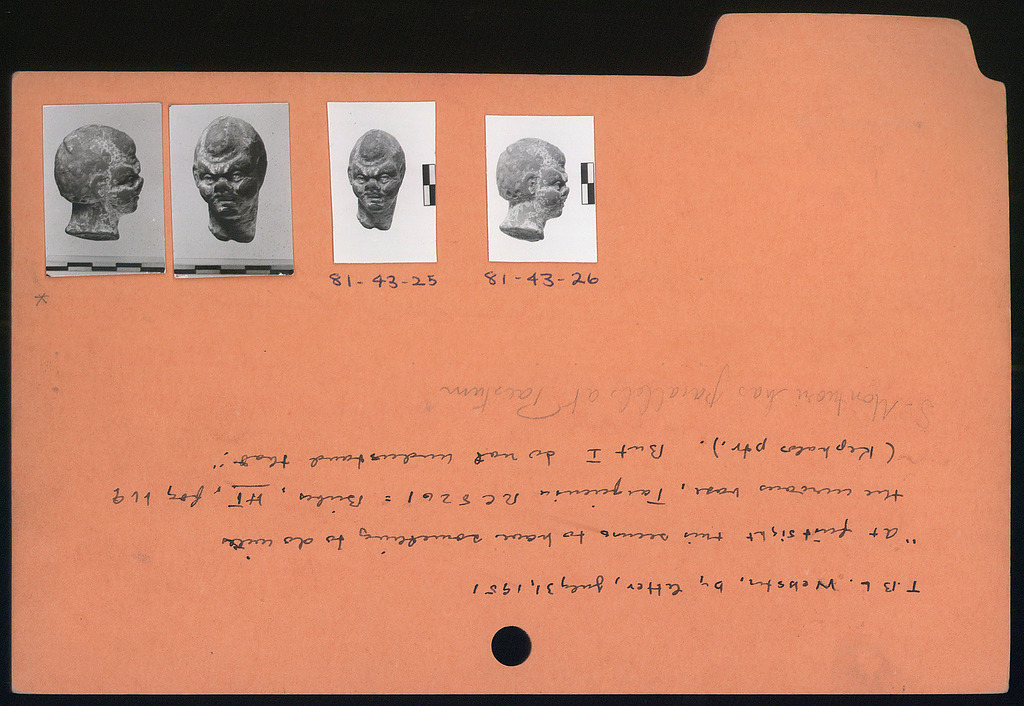 81-43-25
81-43-26
*
T.B.L. Webster, by letter, July 31, 1951
"at first sight this seems to have something to do with
the curious vase, Tarquinia RC 5261 = Bieber, HT, fig, 119
(Kephalos ptr.). But I do not understand that."
Montuori has parallels at Paestum